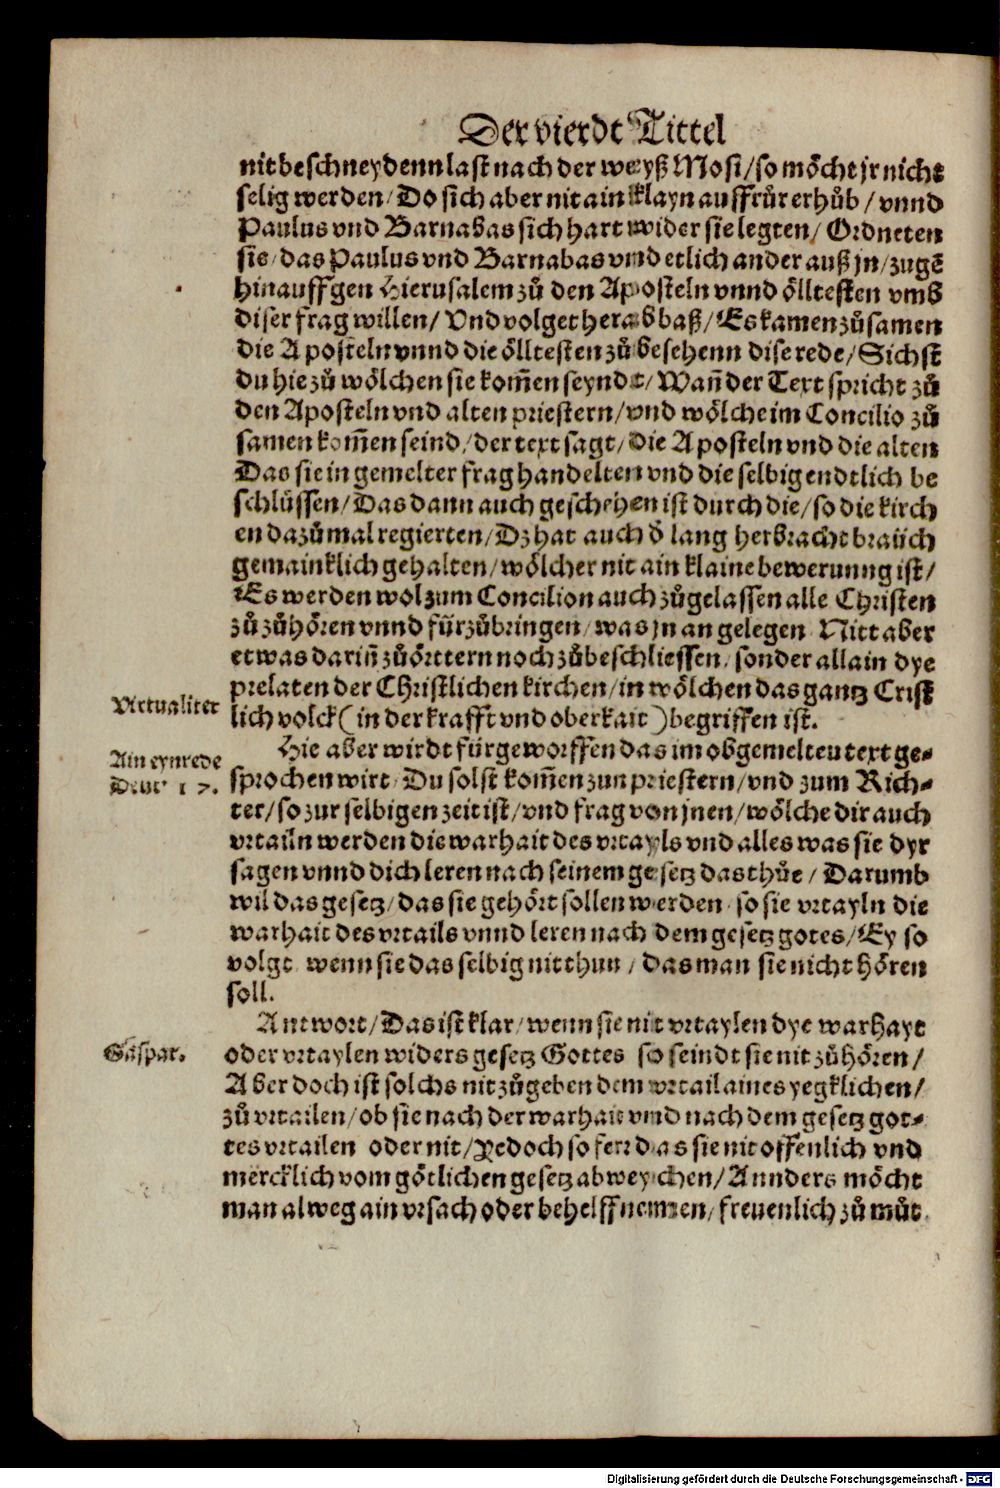 Der vierdt Tittel
nit beschneydenn last nach der weyß Mosi/ so möcht jr nicht
selig werden/ Do sich aber nit ain klayn auffrůr erhůb/ vnnd
Paulus vnd Barnabas sich hart wider sie legten/ Ordneten
sie/ das Paulus vnd Barnabas vnd etlich ander auß jn/ zugē
hinauff gen Hierusalem zů den Aposteln vnnd ölltesten vmb
diser frag willen/ Vnd volget herab baß/ Es kamen zůsamen
die Aposteln vnnd die ölltesten zů besehenn dise rede/ Sichst
du hie zů wölchen sie kom̄en seyndt/ Wañ der Text spricht zů
den Aposteln vnd alten priestern/ vnd wölche im Concilio zů
samen kom̄en seind/ der text sagt/ die Aposteln vnd die alten
Das sie in gemelter frag handelten vnd die selbig endtlich be
schlüssen/ Das dann auch geschehen ist durch die/ so die kirch
en dazůmal regierten/ Dz hat auch d̄ lang herbracht braüch
gemainklich gehalten/ wölcher nit ain klaine bewerunng ist/
Es werden wol zum Concilion auch zůgelassen alle Christen
zů zůhören vnnd fürzůbringen/ was jn angelegen Nitt aber
etwas dariñ zůörttern noch zůbeschliessen/ sonder allain dye
prelaten der Christlichen kirchen/ in wölchen das gantz Crist
lich volck (in der krafft vnd oberkait) begriffen ist.
Virtualiter
Hie aber wirdt fürgeworffen das im obgemelten text ge-
Ain eynrede
sprochen wirt/ Du solst kom̄en zun priestern/ vnd zum Rich-
Deut. 17.
ter/ so zur selbigen zeit ist/ vnd frag von jnen/ wölche dir auch
vrtailn werden die warhait des vrtayls vnd alles was sie dyr
sagen vnnd dich leren nach seinem gesetz das thůe/ Darumb
wil das gesetz/ das sie gehört sollen werden/ so sie vrtayln die
warhait des vrtails vnnd leren nach dem gesetz gotes/ Ey so
volgt wenn sie das selbig nit thun/ das man sie nicht hören
soll.
Antwort/ Das ist klar/ wenn sie nit vrtaylen dye warhayt
Gaspar.
oder vrtaylen widers gesetz Gottes so seindt sie nit zůhören/
Aber doch ist solchs nit zůgeben dem vrtail aines yegklichen/
zů vrtailen/ ob sie nach der warhait vnnd nach dem gesetz got-
tes vrtailen oder nit/ Yedoch so ferr das sie nit offenlich vnd
mercklich vom götlichen gesetz abweychen/ Annders möcht
man alweg ain vrsach oder behelff nemmen/ freuenlich zů můt
Digitalisierung gefördert durch die Deutsche Forschungsgemeinschaft - DFG